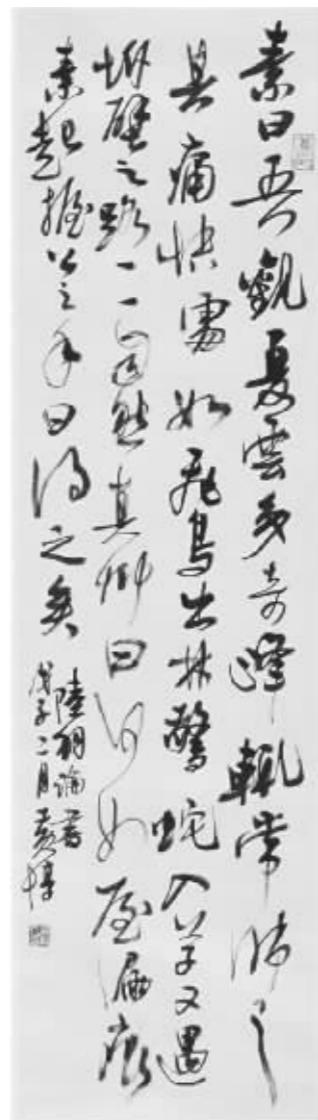 素曰吾觀夏雲多奇峰輒常師之
其痛快處如飛鳥出林驚蛇入草又遇
坼壁之路一一自然真卿曰何如屋漏痕
素起握公之手曰得之矣
陸羽論書
戊子二月黃惇